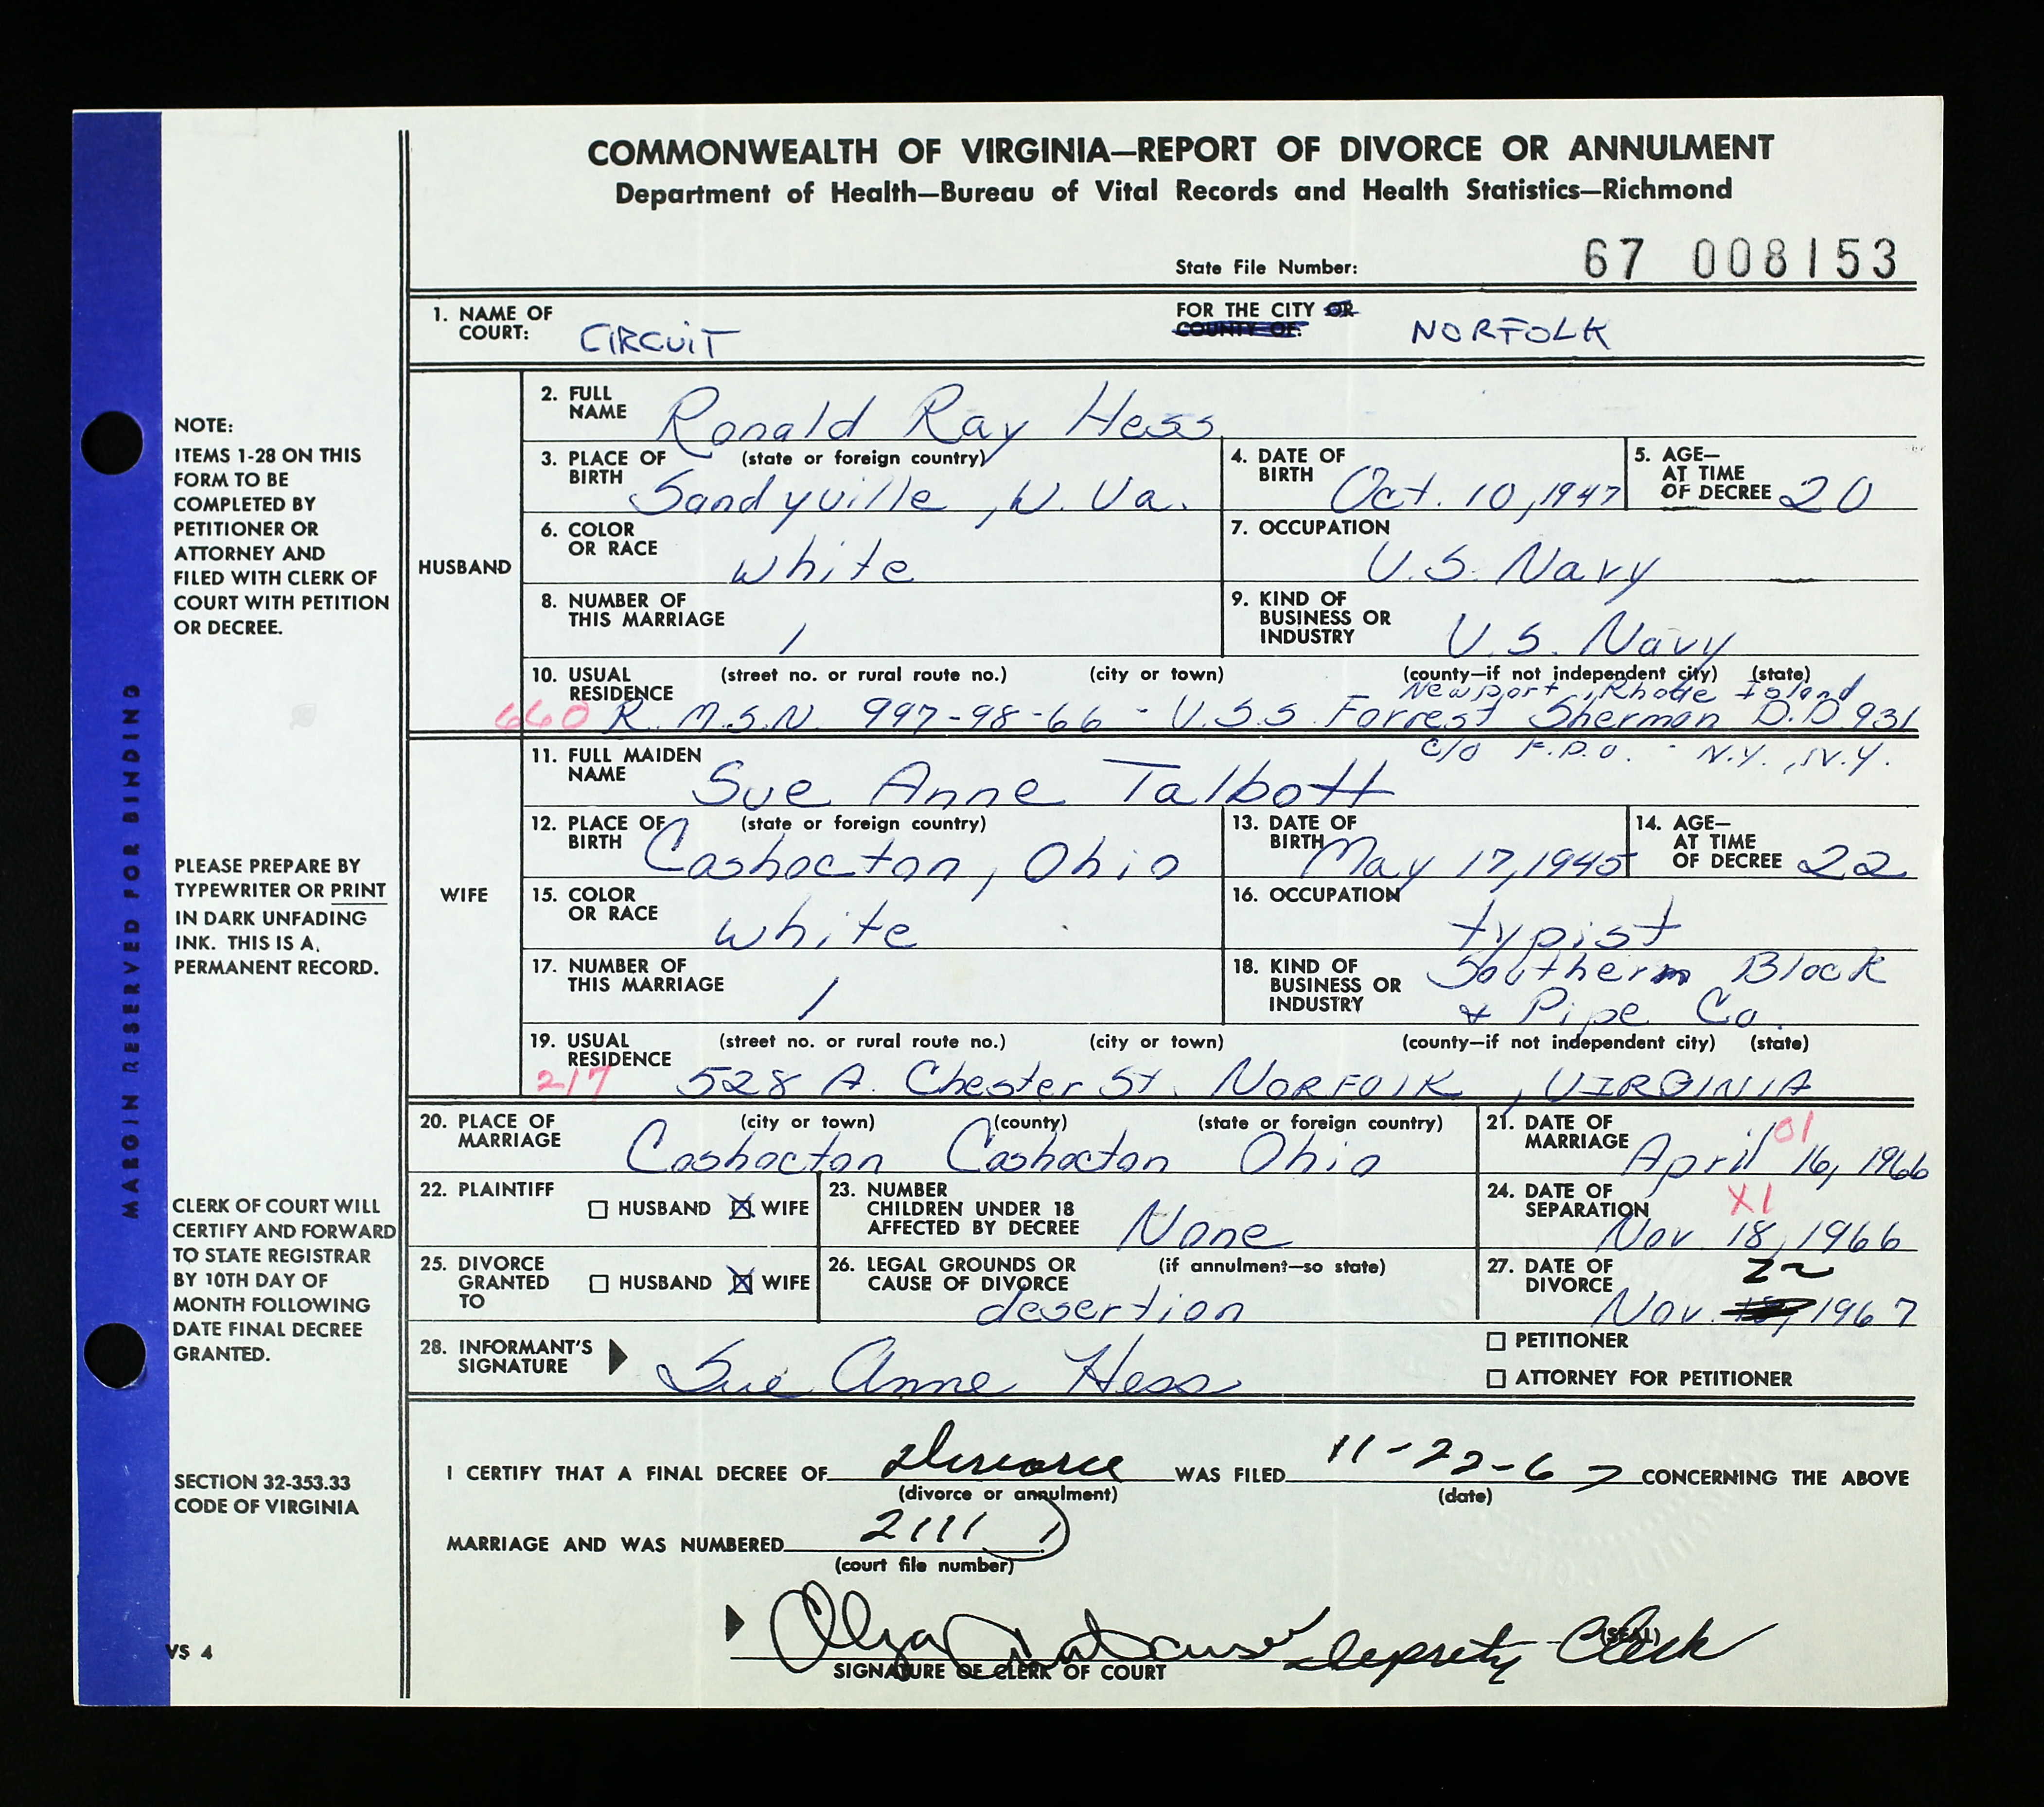 COMMONWEALTH OF VIRGINIA—REPORT OF DIVORCE OR ANNULMENT
Department of Health—Bureau of Vital Records and Health Statistics—Richmond
State File Number: 67 008153
1. NAME OF COURT: CIRCUIT FOR THE CITY OR COUNTY OF: NORFOLK
HUSBAND
2. FULL NAME Ronald Ray Hess
3. PLACE OF BIRTH (state or foreign country) Sandyville, W. Va.
4. DATE OF BIRTH Oct. 10, 1947
5. AGE—AT TIME OF DECREE 20
6. COLOR OR RACE white
7. OCCUPATION U.S. Navy
8. NUMBER OF THIS MARRIAGE 1
9. KIND OF BUSINESS OR INDUSTRY U.S. Navy
10. USUAL RESIDENCE (street no. or rural route no.) (city or town) (county—if not independent city) (state)
Newport, Rhode Island
660 R.M.S.N. 997-98-66 - U.S.S. Forrest Sherman D.D 931
c/o F.P.O. - N.Y., N.Y.
WIFE
11. FULL MAIDEN NAME Sue Anne Talbott
12. PLACE OF BIRTH (state or foreign country) Coshocton, Ohio
13. DATE OF BIRTH May 17, 1945
14. AGE—AT TIME OF DECREE 22
15. COLOR OR RACE white
16. OCCUPATION typist
17. NUMBER OF THIS MARRIAGE 1
18. KIND OF BUSINESS OR INDUSTRY Southern Block & Pipe Co.
19. USUAL RESIDENCE (street no. or rural route no.) (city or town) (county—if not independent city) (state)
217 528 A. Chester St. NORFOLK, VIRGINIA
20. PLACE OF MARRIAGE (city or town) (county) (state or foreign country)
Coshocton Coshocton Ohio
21. DATE OF MARRIAGE 01 April 16, 1966
22. PLAINTIFF HUSBAND X WIFE
23. NUMBER CHILDREN UNDER 18 AFFECTED BY DECREE None
24. DATE OF SEPARATION XI Nov. 18, 1966
25. DIVORCE GRANTED TO HUSBAND X WIFE
26. LEGAL GROUNDS OR CAUSE OF DIVORCE (if annulment—so state) desertion
27. DATE OF DIVORCE Nov. 22 1967
28. INFORMANT'S SIGNATURE Sue Anne Hess
PETITIONER
ATTORNEY FOR PETITIONER
I CERTIFY THAT A FINAL DECREE OF Divorce WAS FILED 11-22-67 CONCERNING THE ABOVE
(divorce or annulment) (date)
MARRIAGE AND WAS NUMBERED 2111
(court file number)
Olga Deputy Clerk
(SEAL)
SIGNATURE OF CLERK OF COURT
MARGIN RESERVED FOR BINDING
NOTE:
ITEMS 1-28 ON THIS
FORM TO BE
COMPLETED BY
PETITIONER OR
ATTORNEY AND
FILED WITH CLERK OF
COURT WITH PETITION
OR DECREE.
PLEASE PREPARE BY
TYPEWRITER OR PRINT
IN DARK UNFADING
INK. THIS IS A
PERMANENT RECORD.
CLERK OF COURT WILL
CERTIFY AND FORWARD
TO STATE REGISTRAR
BY 10TH DAY OF
MONTH FOLLOWING
DATE FINAL DECREE
GRANTED.
SECTION 32-353.33
CODE OF VIRGINIA
VS 4